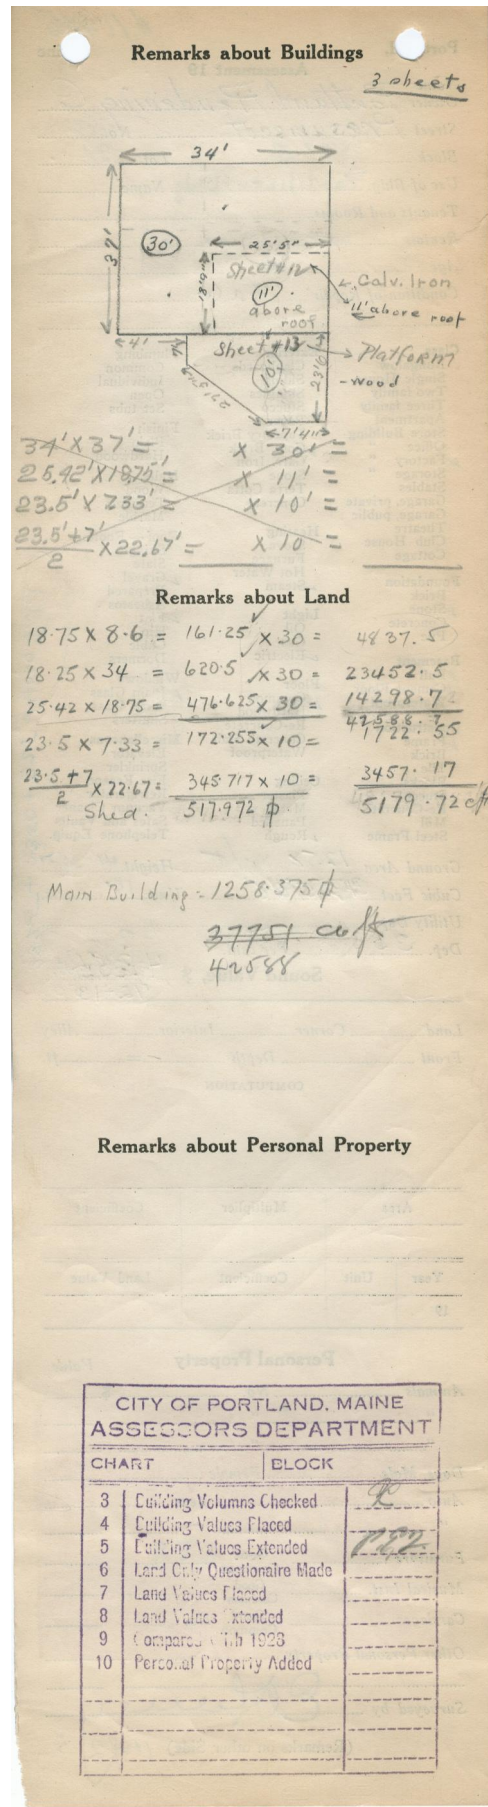 Remarks about Buildings
3 sheets
34'
37'
30'
25'5"
Sheet #12
18'9"
11'
above
roof
Galv. Iron
11' above roof
4'
Sheet #13
Platform
10'
23'6"
wood
7'4"
34' X 37' = X 30' =
25.42' X 18.75' = X 11' =
23.5' X 7.33' = X 10' =
23.5' + 7'
2
X 22.67' = X 10 =
Remarks about Land
18.75 X 8.6 = 161.25 X 30 = 4837.5
18.25 X 34 = 620.5 X 30 = 23452.5
25.42 X 18.75 = 476.625 X 30 = 14298.7
42588.7
23.5 X 7.33 = 172.255 X 10 = 1722.55
23.5 + 7
2
X 22.67 = 345.717 X 10 = 3457.17
Shed. 517.972 5179.72 cft
Main Building = 1258.375
37751 cu ft
42588
Remarks about Personal Property
CITY OF PORTLAND, MAINE
ASSESSORS DEPARTMENT
CHART BLOCK
3 Building Volumns Checked
4 Building Values Placed
5 Building Values Extended
6 Land Only Questionaire Made
7 Land Values Placed
8 Land Values Extended
9 Compared With 1923
10 Personal Property Added